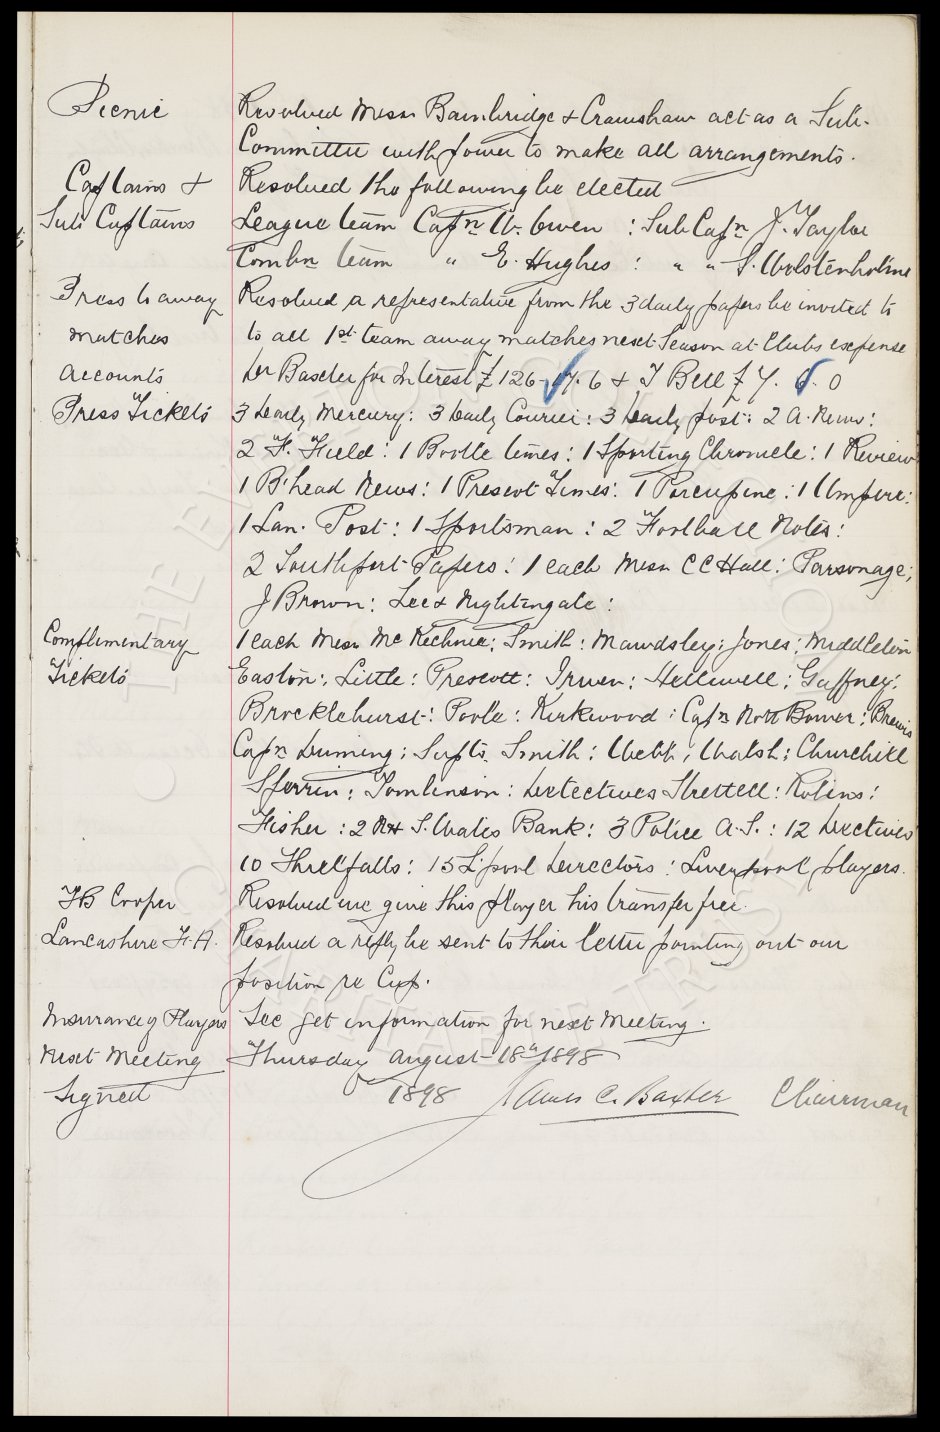 Picnic Resolved Messrs Bainbridge & Cranshaw act as a Sub-
Committee with power to make all arrangements.
Captains & Resolved the following be elected
Sub Captains League team Capn W. Owen : Sub Capn J. Taylor
Combn team " E. Hughes : " " S. Wolstenholme
Press to away Resolved a representative from the 3 daily papers be invited to
matches to all 1st team away matches next Season at Clubs expense
Accounts Dr Baxter for Interest £126. 6 & T Bell £7. 6. 0
Press Tickets 3 Daily Mercury: 3 Daily Courier: 3 Daily post: 2 A. News:
2 F. Field: 1 Bootle times: 1 Sporting Chronicle: 1 Review
1 B'head News: 1 Prescot Times: 1 Porcupine: 1 Umpire:
1 Lan. Post: 1 Sportsman: 2 Football Notes:
2 Southport Papers: 1 each Messrs C C Hall: Parsonage;
J Brown: Lee & Nightingale:
Complimentary 1 each Messrs McKechnie: Smith: Mawdsley: Jones: Middleton
Tickets Easton: Little: Prescott: Irwen: Helliwell: Gaffney:
Brocklehurst: Poole: Kirkwood: Capn Nott Bower: Brewis
Capn Duming: Supts Smith: Webb: Walsh: Churchill
Sperrin: Tomlinson: Detectives Strettell: Robins:
Fisher: 2 N & S. Wales Bank: 3 Police A.S.: 12 Dectives
10 Threlfalls: 15 L'pool Directors: Liverpool players.
FB Cooper Resolved we give this player his transfer free.
Lancashire F.A. Resolved a reply be sent to their letter pointing out our
position re Cup.
Insurance of Players Sec get information for next Meeting.
Next Meeting Thursday August 18th 1898
Signed 1898 James C. Baxter Chairman